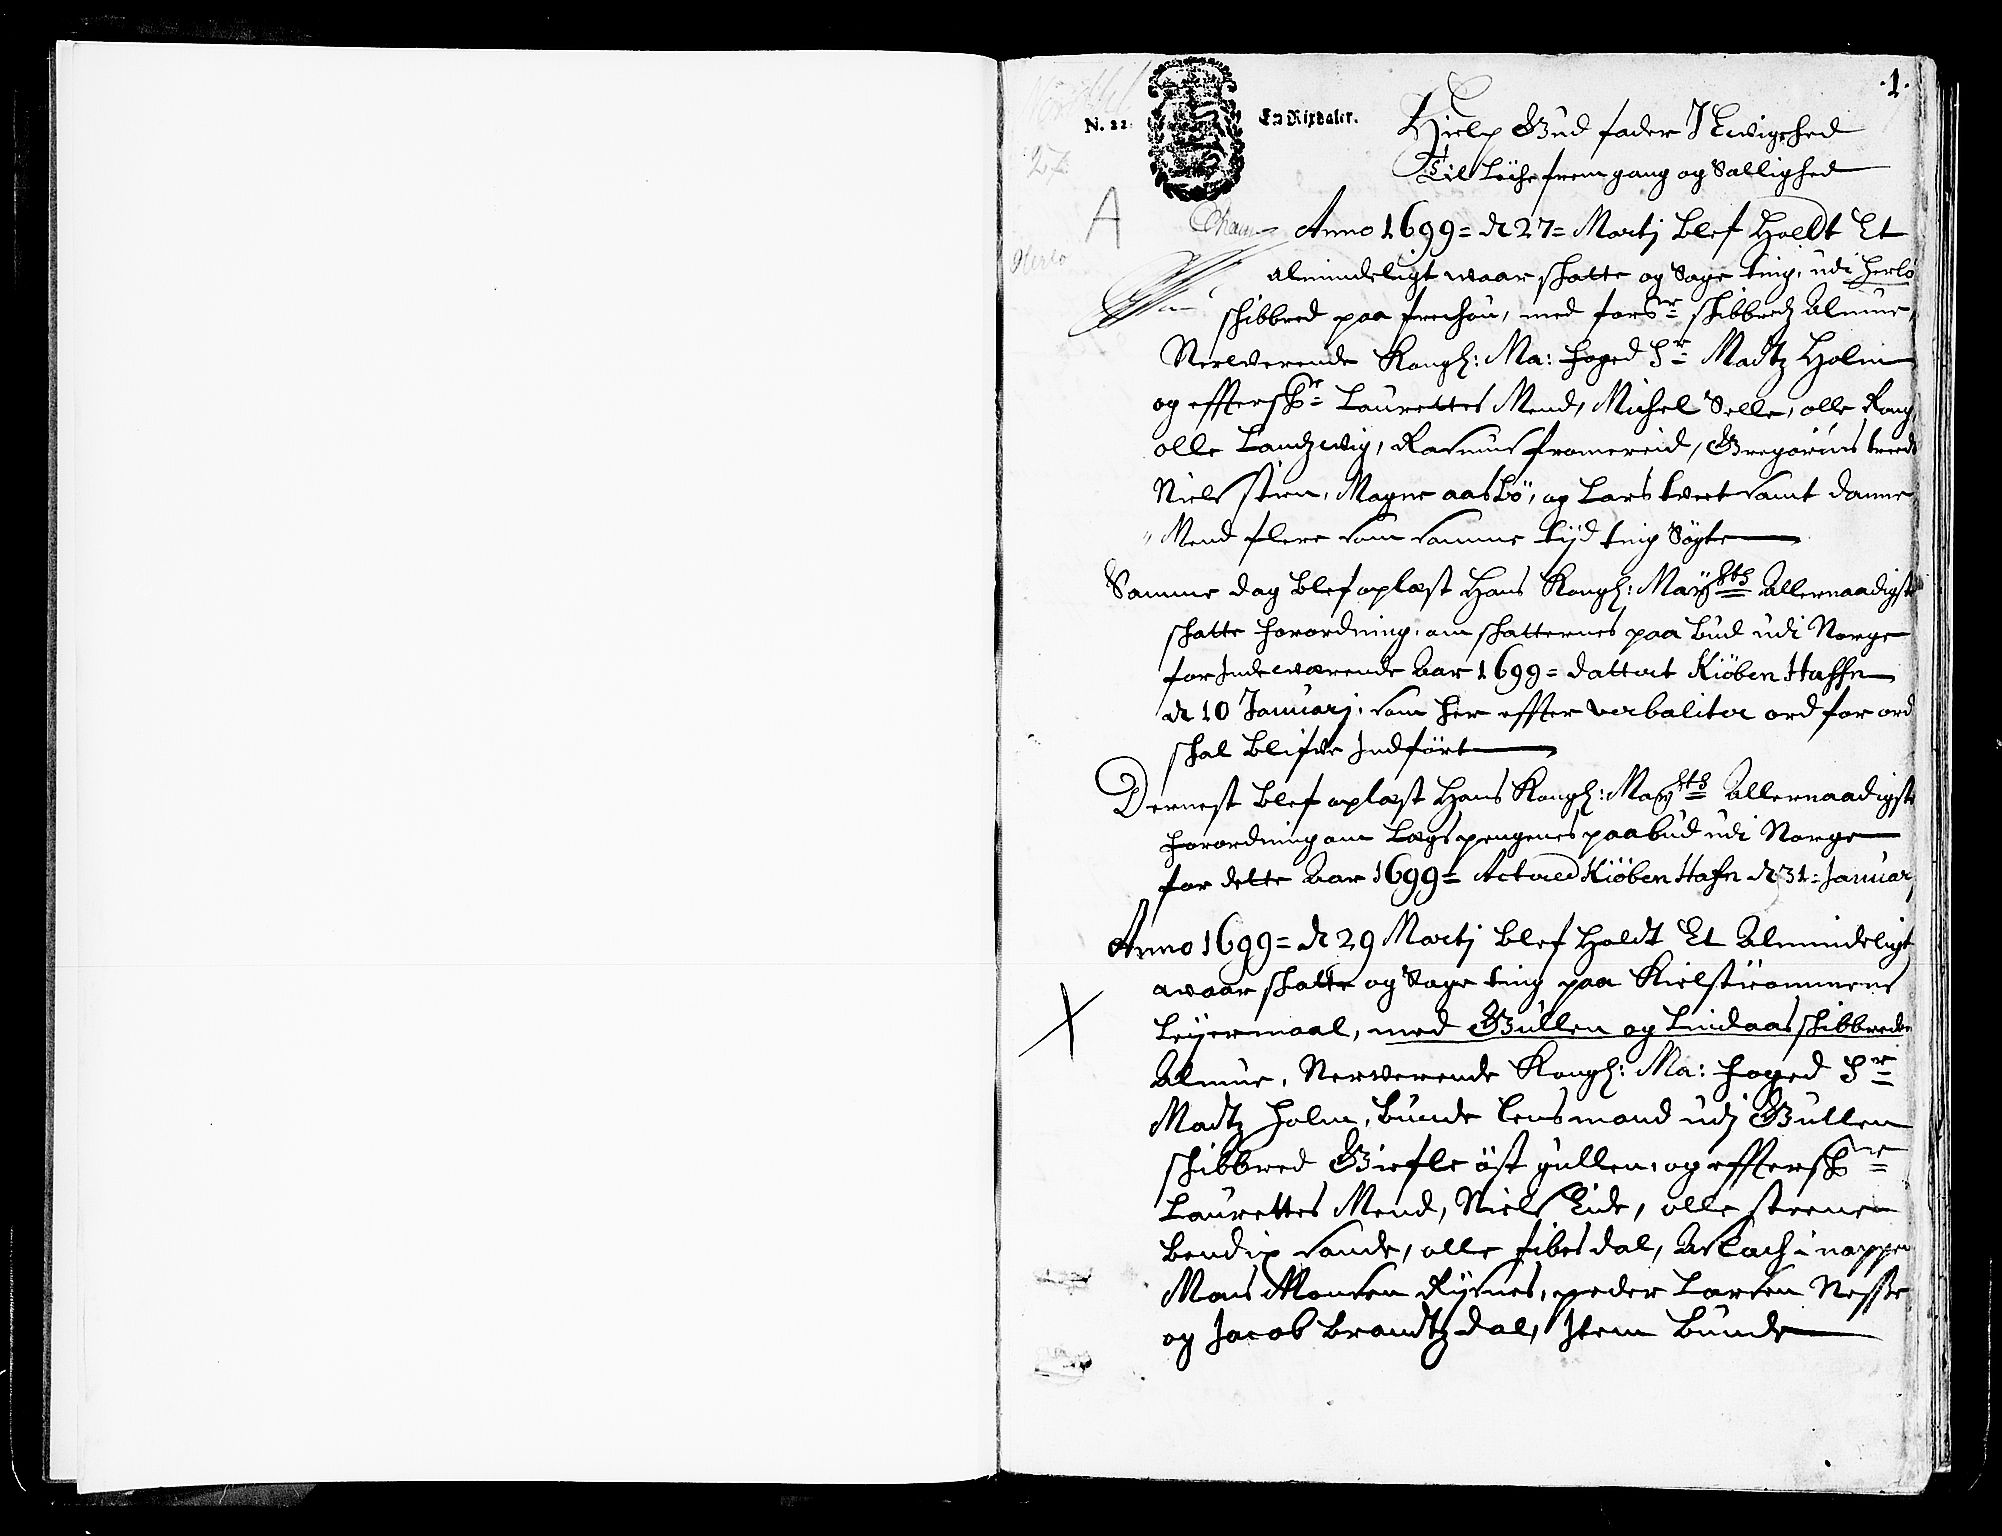 .1.
N. 22. En Rixdaler.
27
Hielp Gud fader I Ewighed
Til Løche fremgang og Sallighed
A
Herlø
Anno 1699 = d 27 = Martj blef Holdt Et
almindeligt waar skatte og Sage ting, udi Herlø
skibbred paa frechøu, med forsr skibbredz Almue,
Nerverende Kongl: Ma: foged Sr Madtz Holm
og effterskr Laurettes Mend, Michel Selle, olle Rong,
olle Landzwig, Rasmus fromereid, Gregorius
Niels stien, Magne aasbø, og Lars tvert samt danne
Mend flere som samme tijd ting Søgte
Samme dag blef oplæst Hans Kongl: Mayßtß Allernaadigste
skatte forordning, om skatternes paa bud udi Norge
for Indeværende Aar 1699 = dattert Kiöben Haffn
d 10 Januarj, som her effter verbaliter ord for ord
skal blifve Indført
Dernest blef oplæst Hans Kongl: Mayßtß Allernaadigste
forordning om Lægs pengenes paabud udi Norge
for dette Aar 1699 = Actum Kiöben Hafn d 31 = Januarj
Anno 1699 = d 29 Martj blef Holdt Et Almindeligt
waar skatte og Sage ting paa Kielstrømmens
Leyermaal, med Gullen og Lindaas skibbreder
Almue, Nerverende Kongl: Ma: foged Sr
Madtz Holm, bunde lensmand udj Gullen
skibbred Giefle øst gullen, og effterskr
Laurettes Mend, Niels Eide, olle steene
bendix sande, olle fibesdal, Aslach i nappen
Mons Monsen Rysnes, peder Larsen Nesse
og Jacob brandtzdal, Item bunde